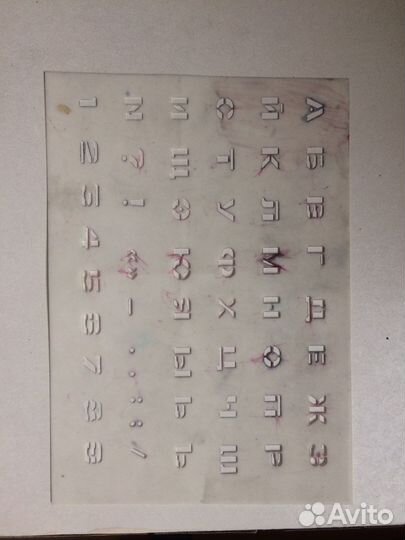 АБВГДЕЖЗ
ЙКЛМНОПР
СТУФХЦЧШ
ИЩЭЮЯЫЬЪ
№ ? ! «» – . , : ; /
1 2 3 4 5 6 7 8 9
Avito